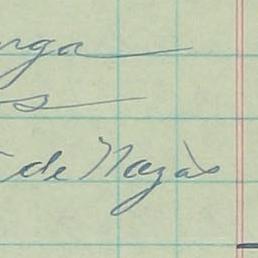 nga
s
de Nazàs